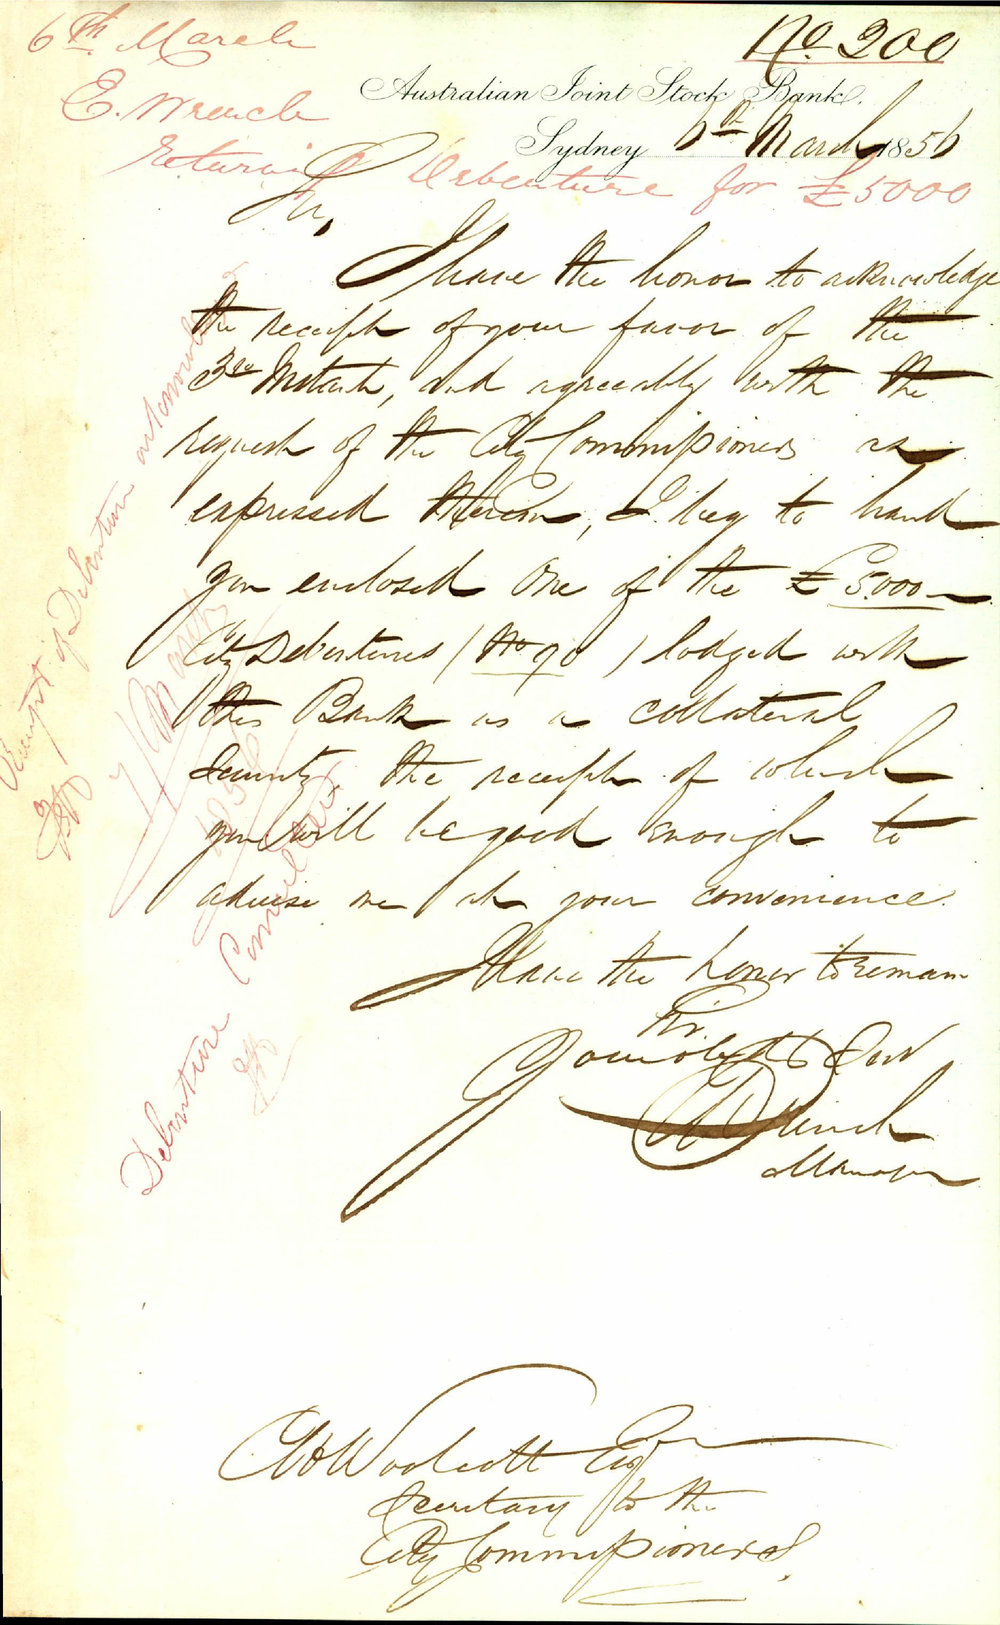 6th March
No. 200
E. Wrench
Australian Joint Stock Bank.
Sydney 6th March 1856
returning Debenture for £5000
Sir,
I have the honor to acknowledge
the receipt of your favor of the
3rd Instant, and agreeably with the
request of the City Commissioners as
expressed therein, I beg to hand
you enclosed one of the £5000
City Debentures (No 90) lodged with
this Bank as a collateral
Security the receipt of which
you will be good enough to
advise me at your convenience.
I have the honor to remain
Sir.
Your obedt Serv
Wrench
Manager
Receipt of Debenture acknowledged
7 March
1856
Debenture Cancelled
C H Woolcott Esqr
Secretary to the
City Commissioners.